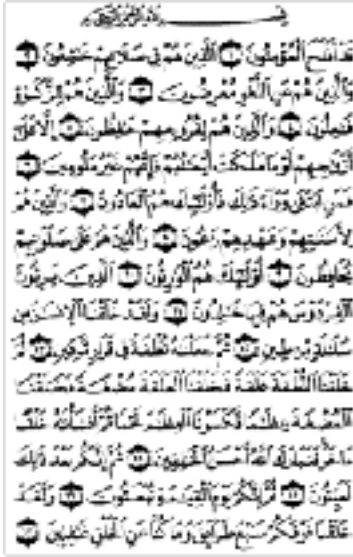 بسم الله الرحمن الرحيم
قد أفلح المؤمنون ١ الذين هم في صلاتهم خاشعون ٢
والذين هم عن اللغو معرضون ٣ والذين هم للزكوة
فاعلون ٤ والذين هم لفروجهم حافظون ٥ إلا على
أزواجهم أو ما ملكت أيمانهم فإنهم غير ملومين ٦
فمن ابتغى وراء ذلك فأولئك هم العادون ٧ والذين هم
لأماناتهم وعهدهم راعون ٨ والذين هم على صلواتهم
يحافظون ٩ أولئك هم الوارثون ١٠ الذين يرثون
الفردوس هم فيها خالدون ١١ ولقد خلقنا الإنسان من
سلالة من طين ١٢ ثم جعلناه نطفة في قرار مكين ١٣ ثم
خلقنا النطفة علقة فخلقنا العلقة مضغة فخلقنا
المضغة عظاما فكسونا العظام لحما ثم أنشأناه خلقا
آخر فتبارك الله أحسن الخالقين ١٤ ثم إنكم بعد ذلك
لميتون ١٥ ثم إنكم يوم القيامة تبعثون ١٦ ولقد
خلقنا فوقكم سبع طرائق وما كنا عن الخلق غافلين ١٧